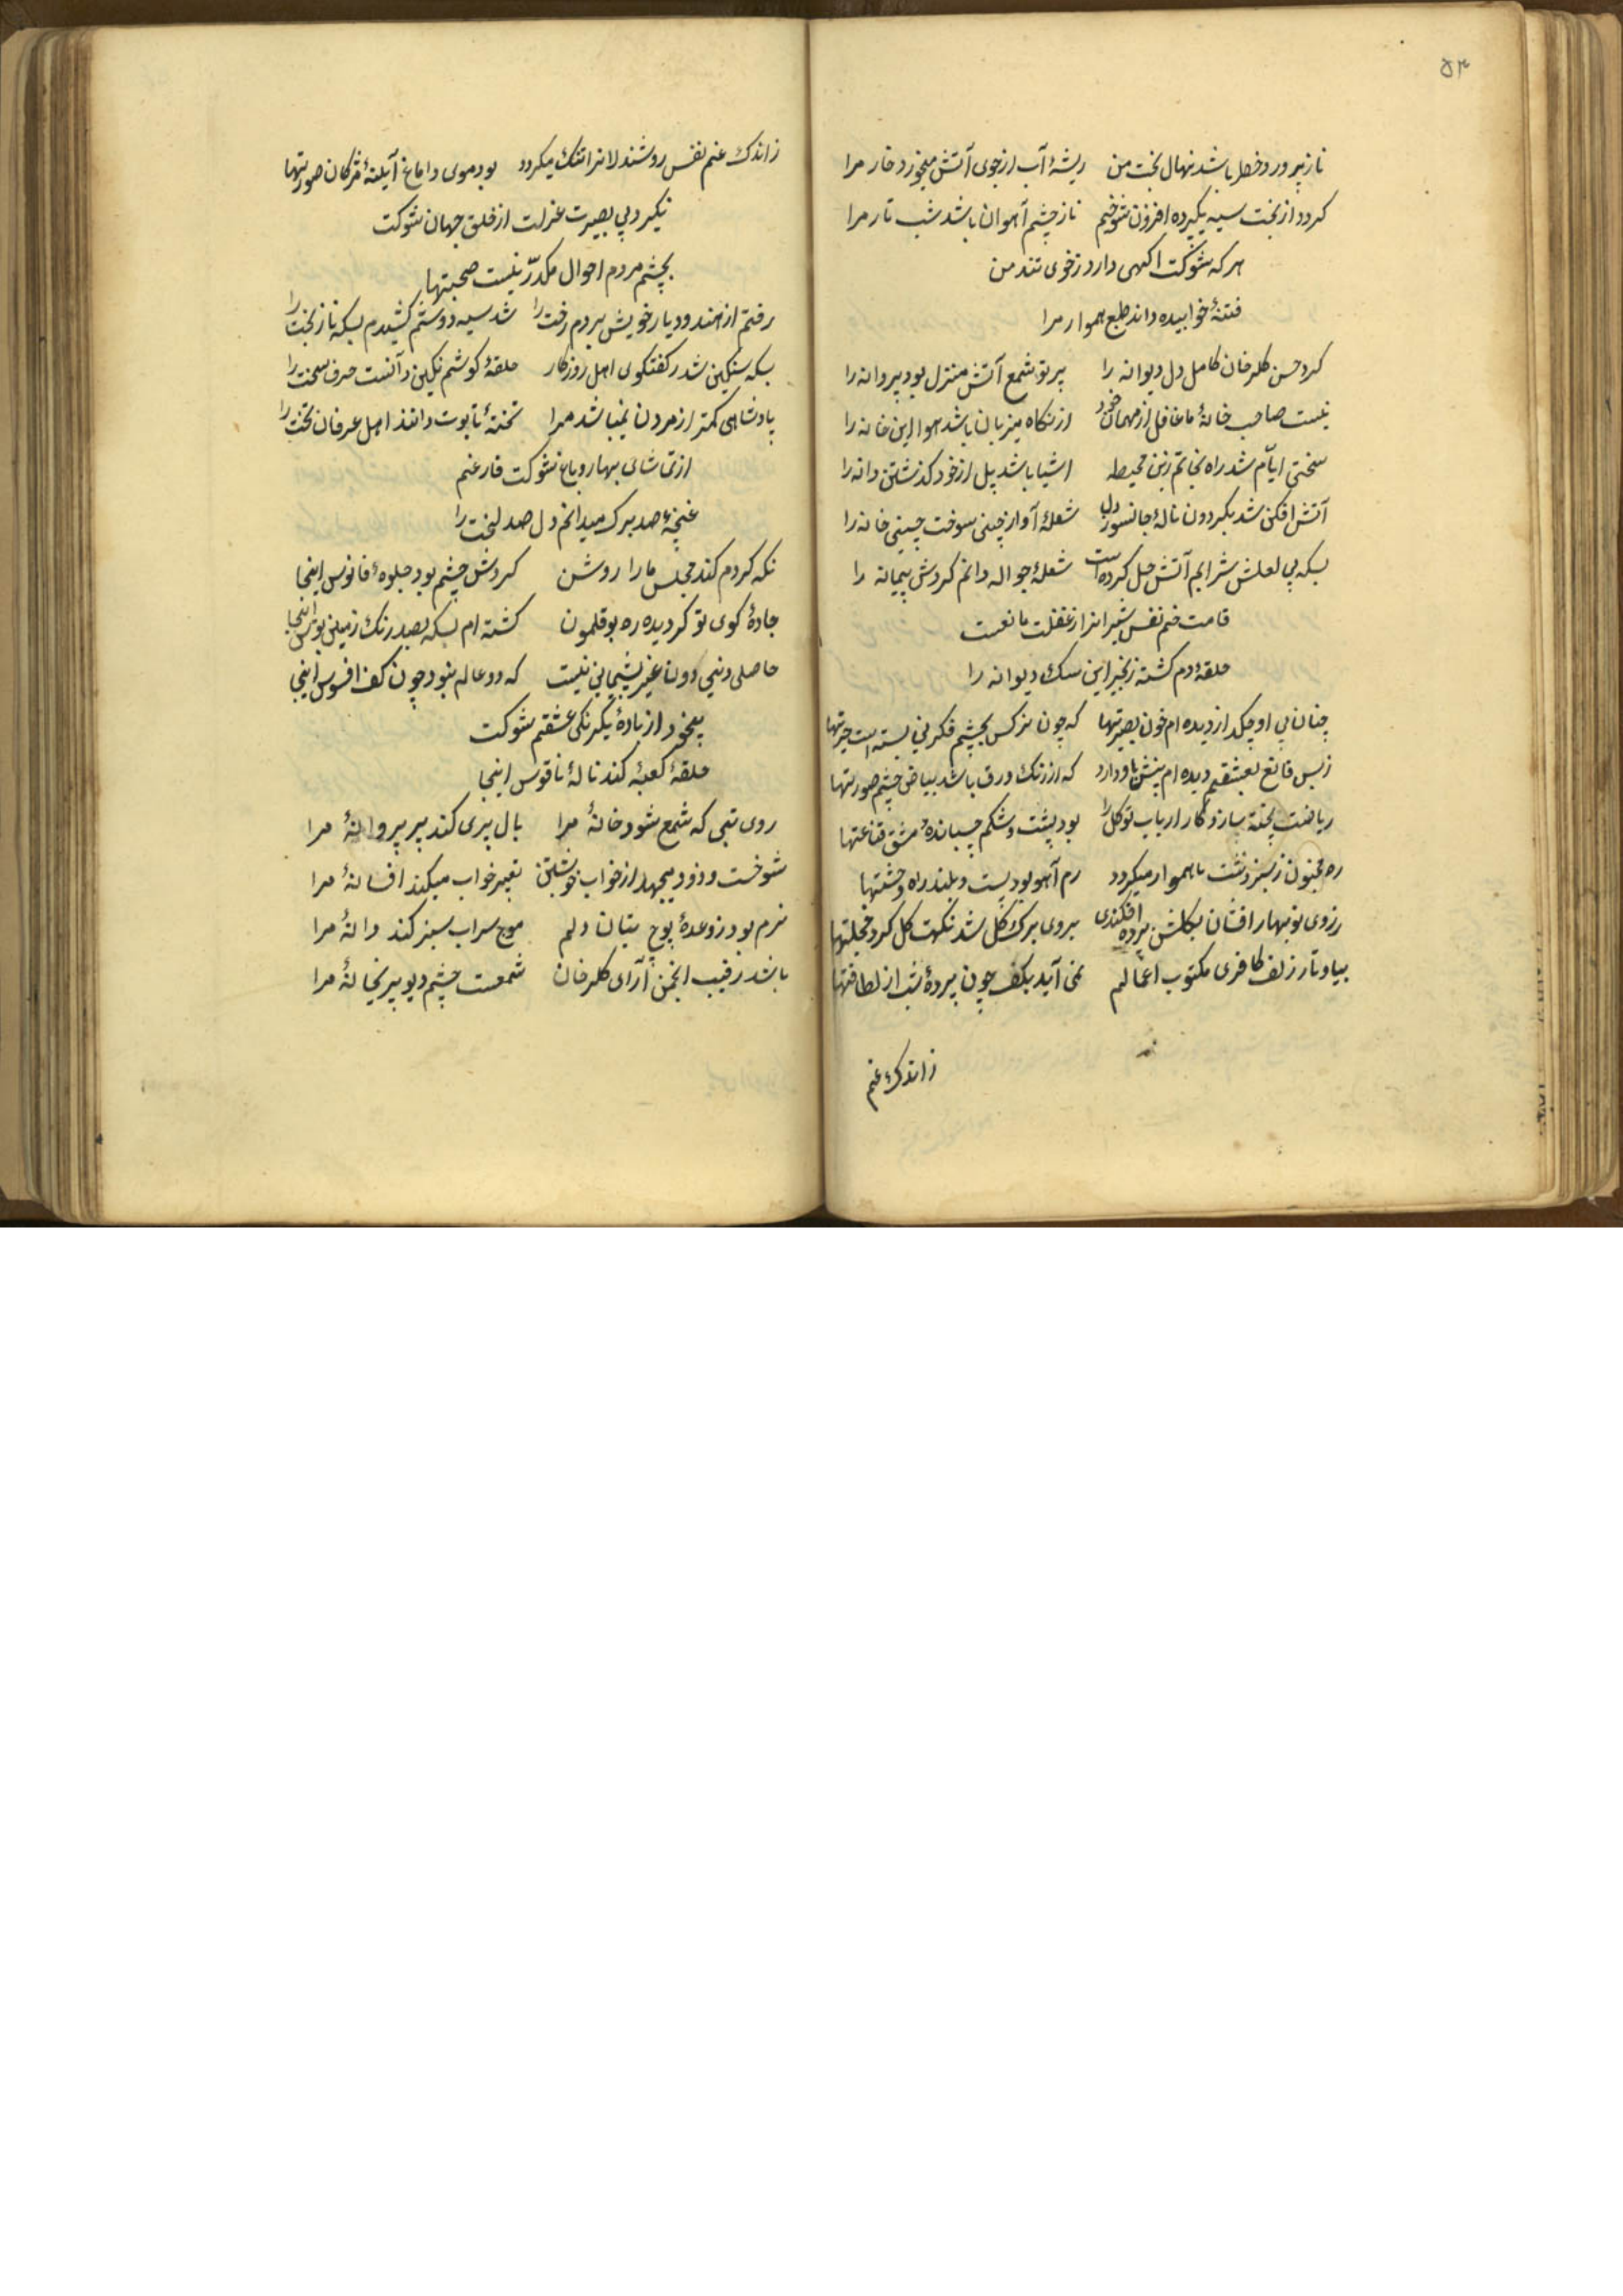 ۵۳
ناز پرورد خطر باشد نهال بخت من ریشهٔ آب از جوی آتش میخورد خار مرا
کردد از بخت سیه یکپرده افزون شوخیم ناز چشم آهوان باشد شب تار مرا
هر که شوکت اکهی دارد ز خوی تند من
فتنهٔ خوابیده داند طبع هموار مرا
کرد حسن کلرخان کامل دل دیوانه را پرتو شمع آتش منزل بود پروانه را
نیست صاحب خانهٔ ما غافل از مهمان خود از نکاه میزبانان باشد هوا این خانه را
سختی ایّام شد راه نجاتم زین محیط اشیا باشد پل از خود کذشتن دانه را
آتش افکن شد بکردون نالهٔ جانسوز دل شعلهٔ آواز چینی سوخت چینی خانه را
بسکه بی لعلش شرابم آتش حل کرده است شعلهٔ جواله دانم کردش پیمانه را
قامت خم نفس شیرانرا از غفلت مانعست
حلقهٔ دم کشته زنجیر این سک دیوانه را
چنان بی او چکد از دیده ام خون بصیرتها که چون نرکس بچشم فکر نی بسته است حیرتها
ز بس قانع بعشقیم دیده ام بینش باو دارد که از رنک ورق باشد بیاض چشم صورتها
ریاضت پخته سازد کار ارباب توکل را بود پشت و شکم چسبانده مشق قناعتها
ره مجنون ز سیر دشت ناهموار میکردد رم آهو بود پست و بلند راه وحشتها
ز روی نوبهار افشان بکلشن پرده افکندی بروی برک کل شد نکهت کل کرد خجلتها
بیاد تار زلف کافری مکتوب اعمالم نمی آید بکف چون پردهٔ شب از لطافتها
ز اندک غم
ز اندک غم نفس روشندلانرا تنک میکردد بود موی دماغ آیینهٔ مژکان صورتها
نکیرد بی بصیرت عزلت از خلق جهان شوکت
بچشم مردم احوال مکدّر نیست صحبتها
رفتم از هند و دیار خویش بردم رخت را شد سیه دوشم کشیدم بسکه ناز بخت را
بسکه سنکین شد ز کفتکوی اهل روزکار حلقهٔ کوشم نکین دانست حرف سخت را
پادشاهی کمتر از مردن نمیباشد مرا تختهٔ تابوت دانند اهل عرفان تخت را
از تماشای بهار و باغ شوکت فارغم
غنچهٔ صد برک میدانم دل صد لخت را
نکه کردم کند مجلس ما را روشن کردش چشم بود جلوهٔ فانوس اینجا
جادهٔ کوی تو کردیده ره بوقلمون کشته ام بسکه بصد رنک زمین بوس اینجا
حاصلی دنیی دون غیر پشیمانی نیست که دو عالم بود چون کف افسوس اینجا
بیخود از بادهٔ یکرنکی عشقم شوکت
حلقهٔ کعبه کند نالهٔ ناقوس اینجا
روی بتی که شمع شود خانهٔ مرا بال پری کند پر پروانهٔ مرا
شوخست و زود میجهد از خواب خویشتن تعبیر خواب میکند افسانهٔ مرا
نرم بود ز وعدهٔ پوچ بتان دلم موج سراب سبز کند دانهٔ مرا
باشد رقیب انجمن آرای کلرخان شمعست چشم دیو پریخانهٔ مرا